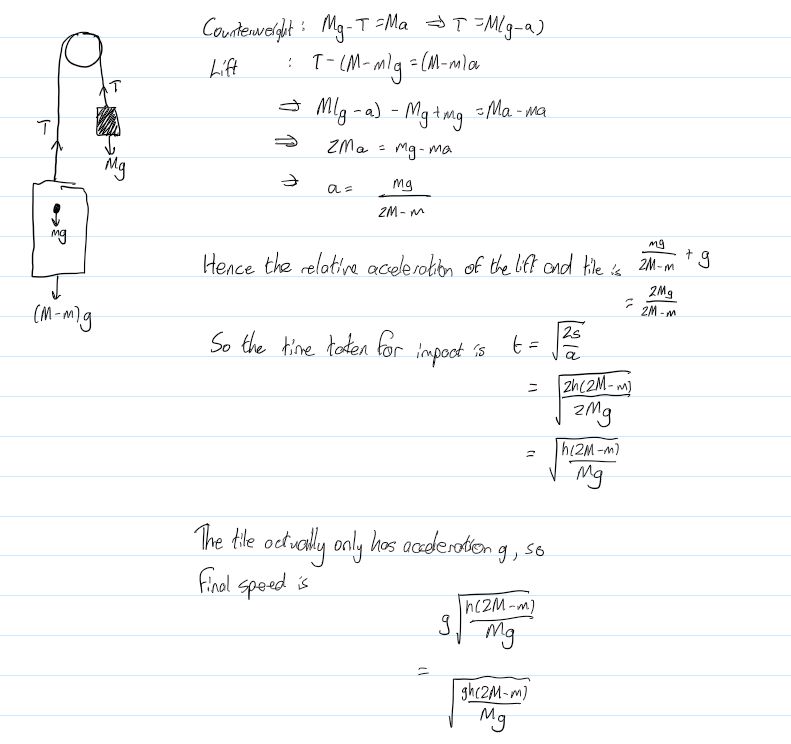 Counterweight : Mg - T = Ma ⇒ T = M(g-a)
Lift : T - (M-m)g = (M-m)a
⇒ M(g-a) - Mg + mg = Ma - ma
⇒ 2Ma = mg - ma
⇒ a = mg / 2M-m
T
T
Mg
mg
(M-m)g
Hence the relative acceleration of the lift and tile is mg / 2M-m + g
= 2Mg / 2M-m
So the time taken for impact is t = √(2s / a)
= √(2h(2M-m) / 2Mg)
= √(h(2M-m) / Mg)
The tile actually only has acceleration g, so
final speed is
g√(h(2M-m) / Mg)
=
√(gh(2M-m) / Mg)